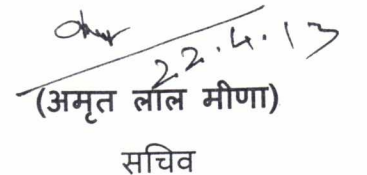 22.4.13
(अमृत लाल मीणा)
सचिव